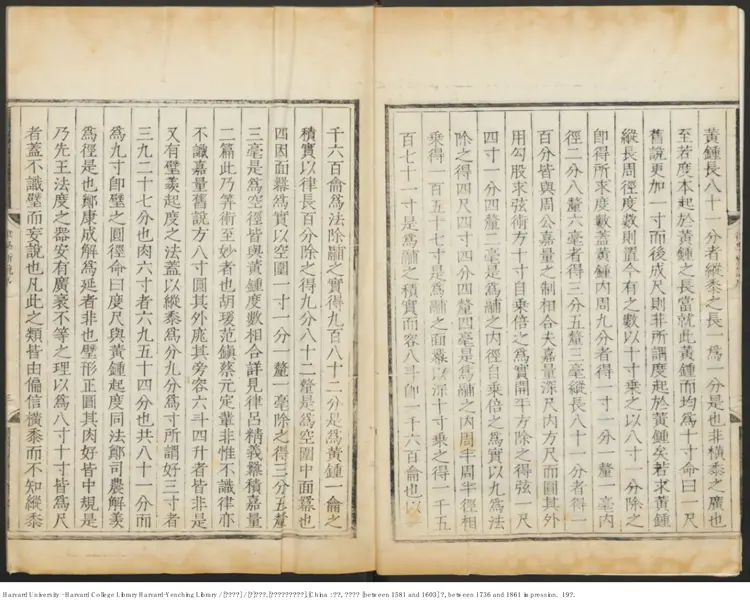 黃鍾長八十一分者縱黍之長一爲一分是也非橫黍之廣也
至若度本起於黃鍾之長當就此黃鍾而均爲十寸命曰一尺
舊說更加一寸而後成尺則非所謂度起於黃鍾矣若求黃鍾
縱長周徑度數則置今有之數以十寸乘之以八寸一分除之
卽得所求度數蓋黃鍾內周九分者得一寸一分一釐一毫內
徑二分八釐六毫者得三分五釐三毫縱長八十一分者得一
百分皆與周公嘉量之制相合夫嘉量深尺內方尺而圓其外
用勾股求弦術方十寸自乘倍之爲實開平方除之得弦一尺
四寸一分四釐二毫是爲鬴之內徑自乘倍之爲實以九爲法
除之得四尺四寸四分四釐四毫是爲鬴之內周半周半徑相
乘得一百五十七寸是爲鬴之面羃以深十寸乘之得一千五
百七十一寸是爲鬴之積實而容八斗卽一千六百龠也以
千六百龠爲法除鬴之實得九百八十二分是爲黃鍾一龠之
積實以律長百分除之得九分八十二釐是爲空圍中面羃也
四因面羃爲實以空圍一寸一分一釐一毫除之得三分五釐
三毫是爲空徑皆與黃鍾度數相合詳見律呂精義羃積嘉量
二篇此乃筭術至妙者也胡瑗范鎭蔡元定輩非惟不識律亦
不識嘉量舊說方八寸圓其外庣其旁容六斗四升者皆非是
又有璧羨起度之法蓋以縱黍爲分九分爲寸所謂好三寸者
三九二十七分也肉六寸者六九五十四分也共八十一分而
爲九寸卽璧之圓徑命曰度尺與黃鍾起度同法鄭司農解羨
爲徑是也鄭康成解爲延者非也璧形正圓其肉好皆中規是
乃先王法度之器安有廣袤不等之理以爲八寸十寸皆爲尺
者蓋不識璧而妄說也凡此之類皆由偏信橫黍而不知縱黍
Harvard University - Harvard College Library Harvard-Yenching Library / [????] / [?]???. [?????????]. [China : ??, ???? [between 1581 and 1603] ?, between 1736 and 1861 impression. 19?.